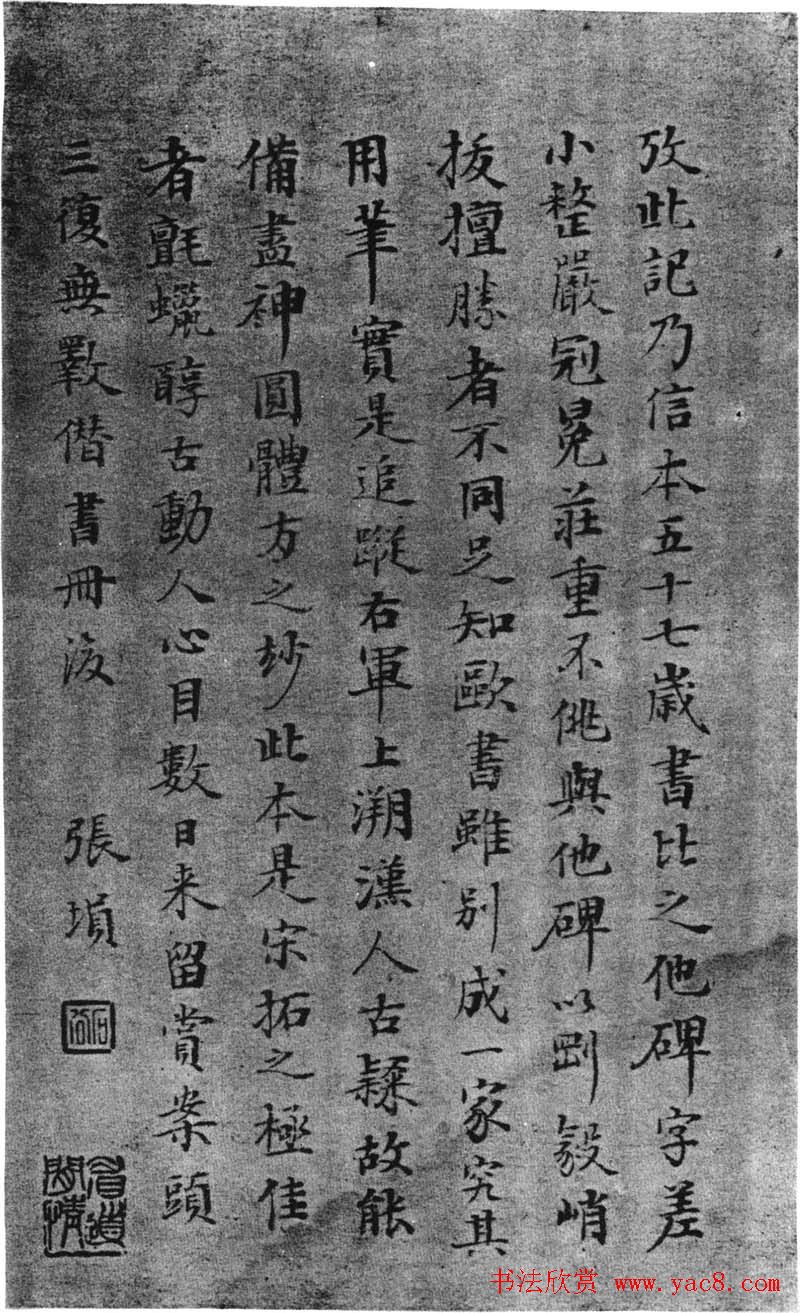 攷此記乃信本五十七歲書比之他碑字差
小整嚴冠冕莊重不佻與他碑以剛毅峭
拔擅勝者不同足知歐書雖别成一家究其
用筆實是追蹤右軍上溯漢人古隸故能
備盡神圓體方之妙此本是宋拓之極佳
者氈蠟醇古動人心目數日来留賞案頭
三復無斁僭書冊後
張塤
書法欣赏 www.yac8.com